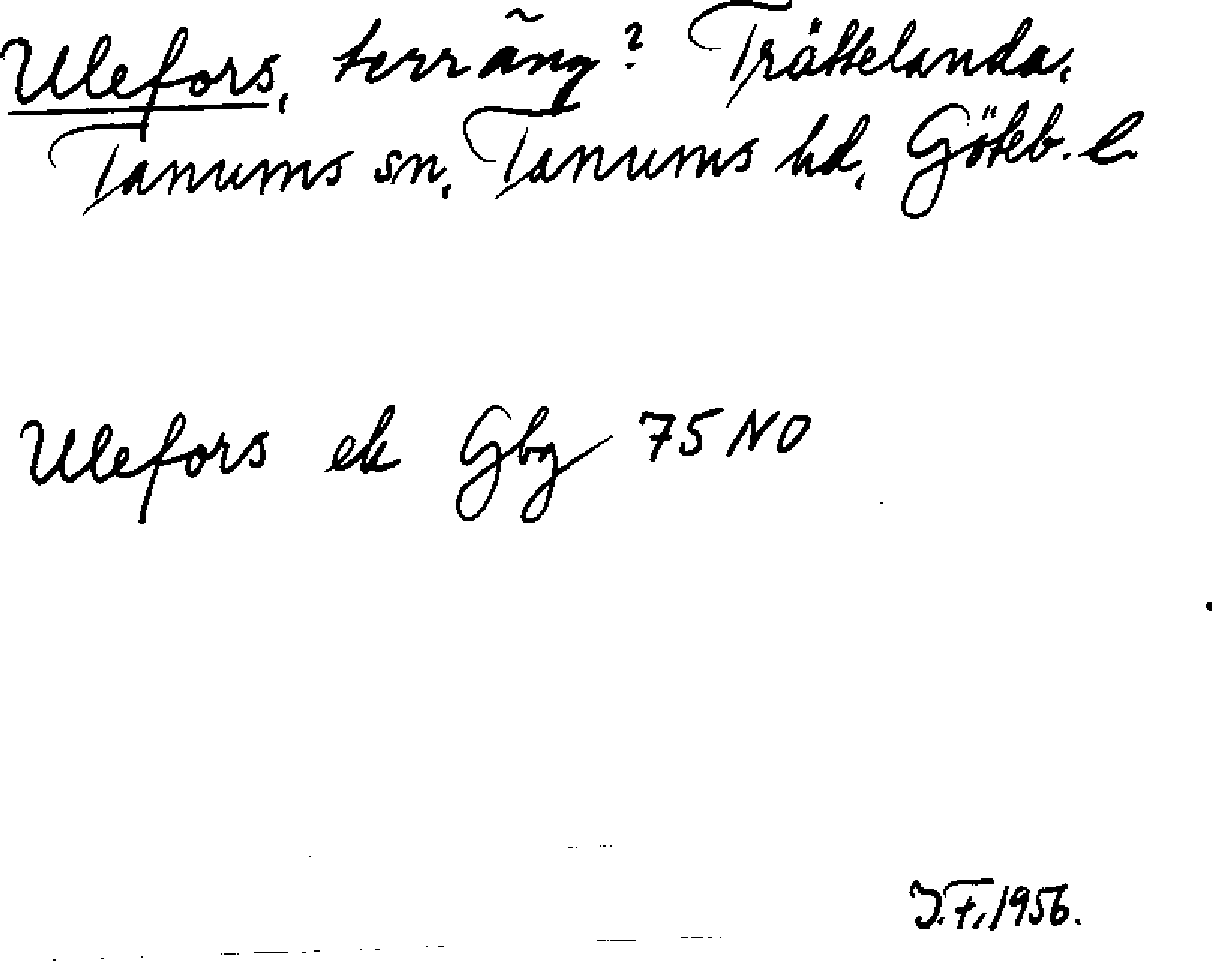 Ulefors, terräng? Tråttelanda,
Tanums sn, Tanums hd, Göteb. l
Ulefors ek Gbg 75 NO
J.F./1956.